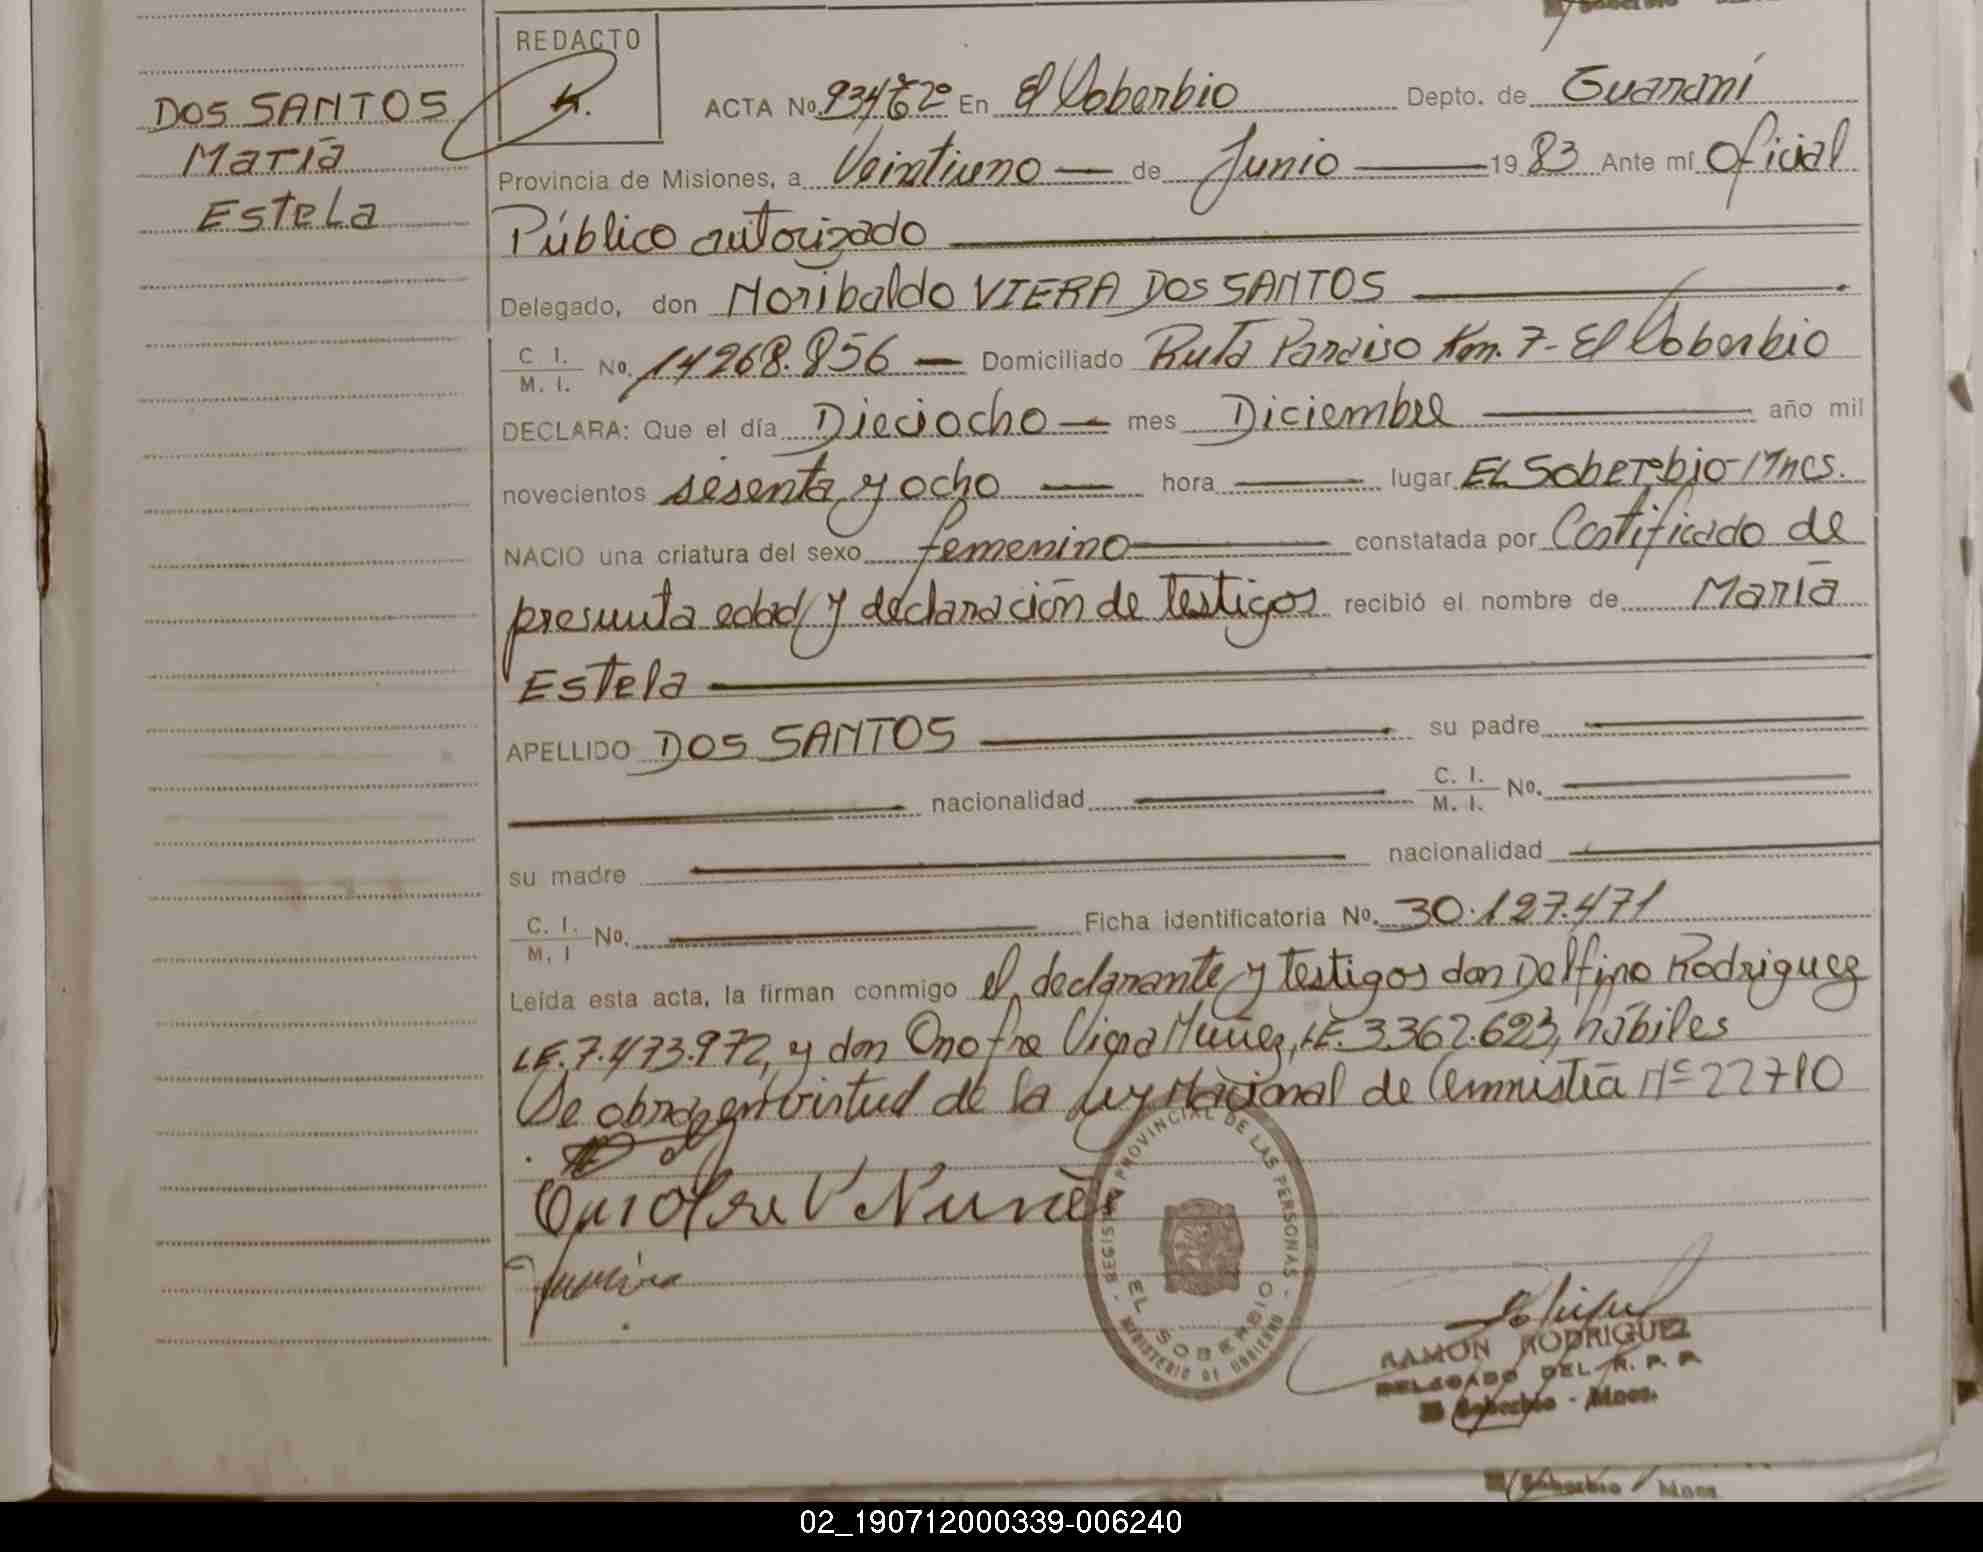 DOS SANTOS
María
Estela
REDACTO
ACTA No. 934 Tº 2º En El Soberbio Depto. de Guaraní
Provincia de Misiones, a Veintiuno de Junio 19 83 Ante mí Oficial
Público autorizado
Delegado, don Noribaldo VIERA DOS SANTOS
C. I. / M. I. No. 14 268.856 Domiciliado Ruta Paraiso Km. 7 - El Soberbio
DECLARA: Que el día Dieciocho mes Diciembre año mil
novecientos sesenta y ocho hora lugar EL Soberbio - Mnes.
NACIO una criatura del sexo femenino constatada por Certificado de
presunta edad y declaración de testigos recibió el nombre de María
Estela
APELLIDO DOS SANTOS su padre
nacionalidad C. I. / M. I. No.
su madre nacionalidad
C. I. / M. I No. Ficha identificatoria No. 30.127.471
Leída esta acta, la firman conmigo el declarante y testigos don Delfino Rodriguez
LE. 7.473.972, y don Onofre Viera Nuñez, LE. 3.362.623, hábiles
Se obra en virtud de la Ley Nacional de Amnistía Nº 22710
REGISTRO PROVINCIAL DE LAS PERSONAS
EL SOBERBIO
MINISTERIO DE GOBIERNO
RAMON RODRIGUEZ
DELEGADO DEL R. P. P.
El Soberbio - Mnes.
El Soberbio Mnes
02_190712000339-006240